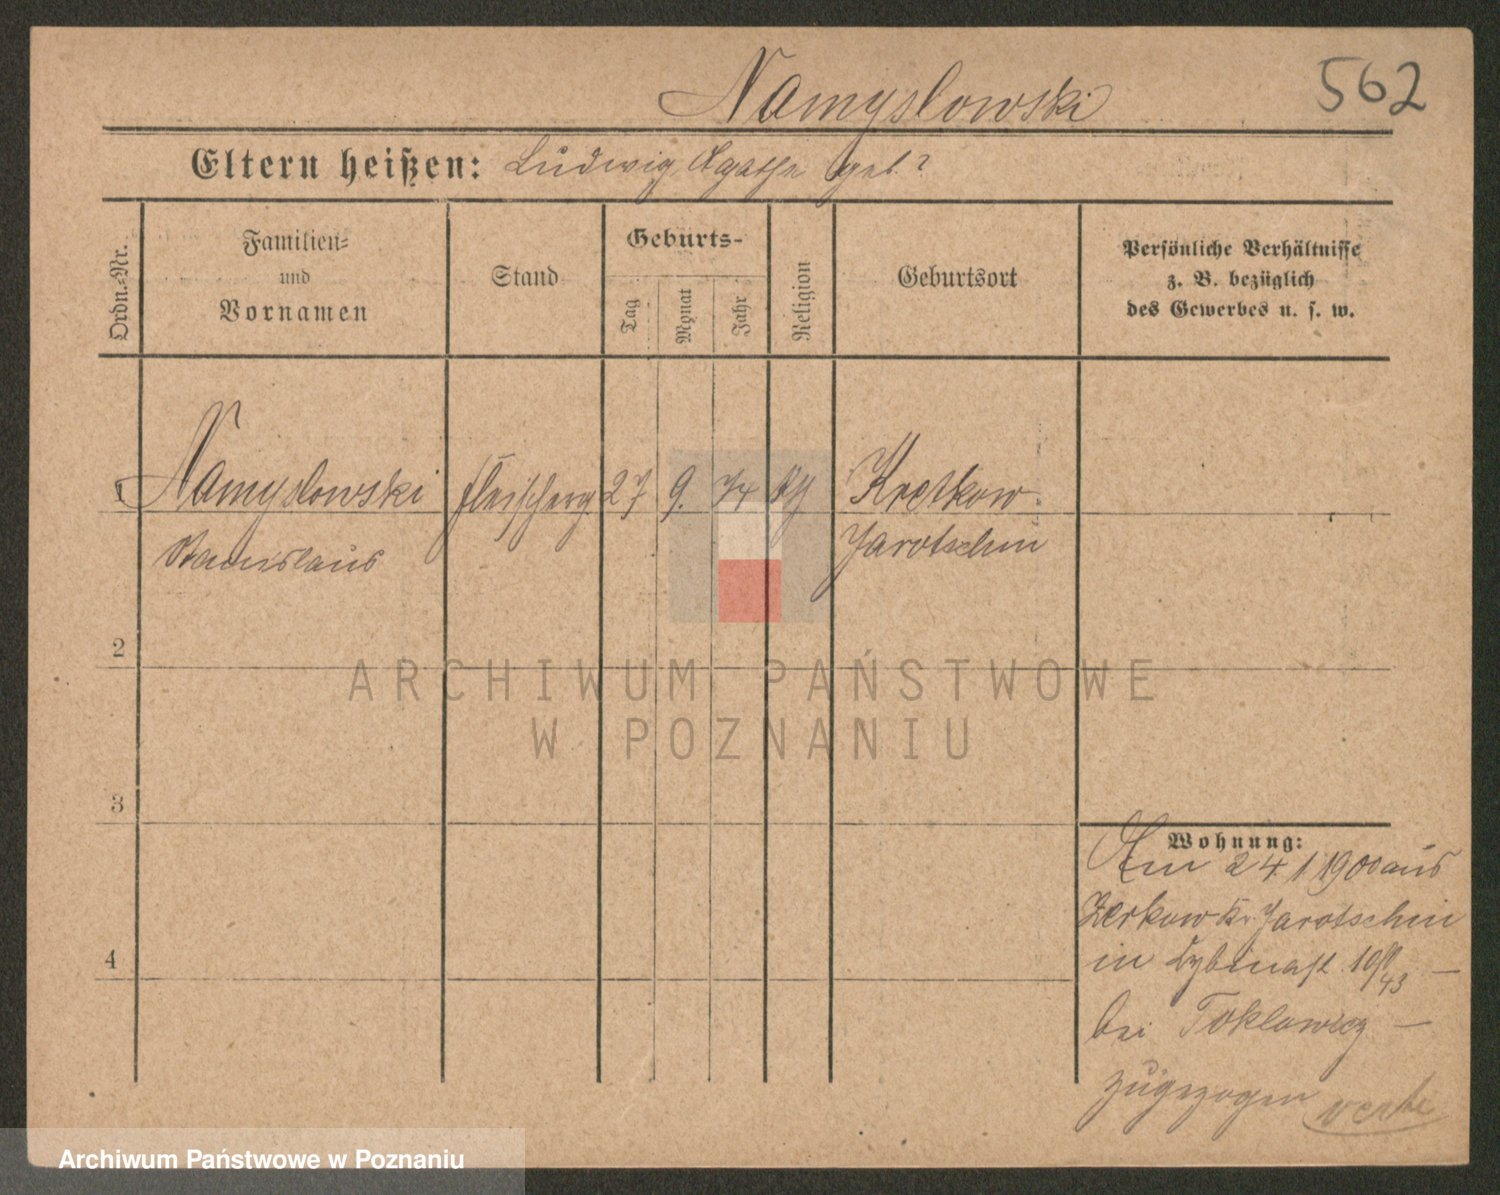 Namyslowski 562
Eltern heißen: Ludwig Agathe geb?
Ordn.-Nr.
Familien-
und
Vornamen
Stand
Geburts-
Tag
Monat
Jahr
Religion
Geburtsort
Persönliche Verhältnisse
z. B. bezüglich
des Gewerbes u. s. w.
1 Namyslowski Fleischerg. 27 9. 74 kth Kretkow
Stanislaus Jarotschin
2
ARCHIWUM PAŃSTWOWE
W POZNANIU
3
Wohnung:
Am 24 1 1900 aus
Zerkow Kr. Jarotschin
in
bei Toklowicz –
zugezogen
4
Archiwum Państwowe w Poznaniu